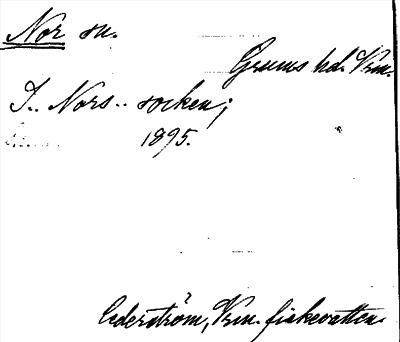 Nor sn.
Grums hd. Vrm.
I.. Nors.. socken;
1895.
Cederström, Vrm. fiskevatten.